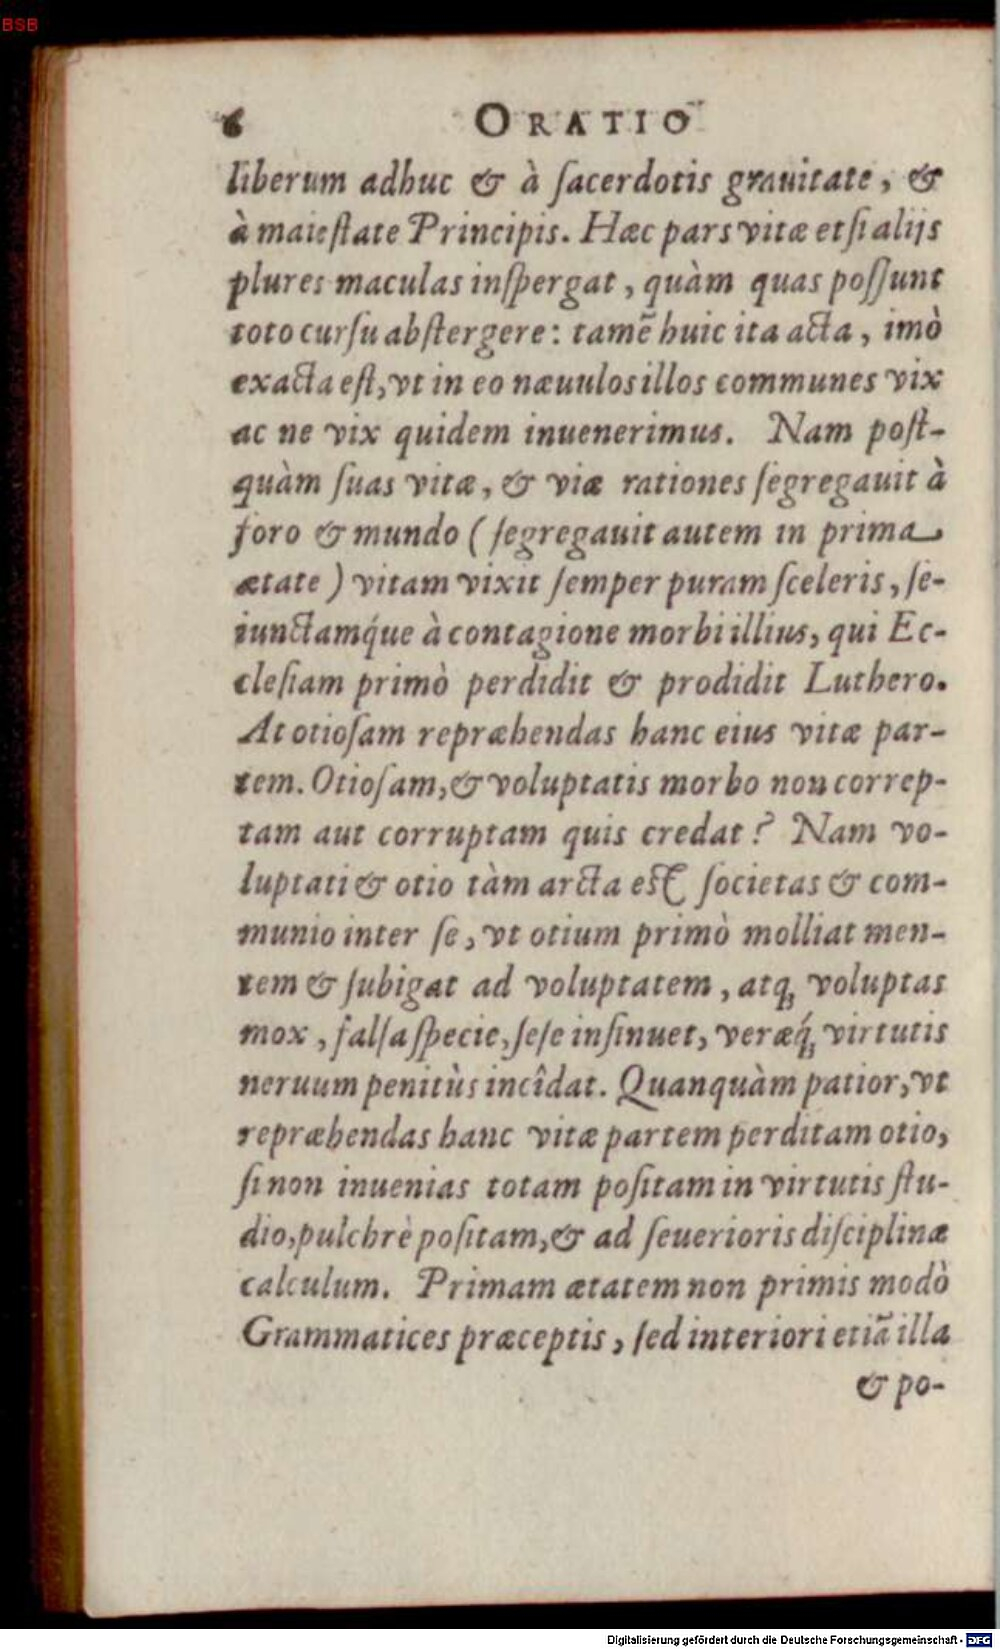 BSB
6 ORATIO
liberum adhuc & à ſacerdotis grauitate, &
à maieſtate Principis. Hæc pars vitæ etſi alijs
plures maculas inſpergat, quàm quas poſſunt
toto curſu abſtergere: tamē huic ita acta, imò
exacta eſt, vt in eo næuulos illos communes vix
ac ne vix quidem inuenerimus. Nam poſt-
quàm ſuas vitæ, & viæ rationes ſegregauit à
foro & mundo (ſegregauit autem in prima
ætate) vitam vixit ſemper puram ſceleris, ſe-
iunctamq́ue à contagione morbi illius, qui Ec-
cleſiam primò perdidit & prodidit Luthero.
At otioſam repræhendas hanc eius vitæ par-
tem. Otioſam, & voluptatis morbo non correp-
tam aut corruptam quis credat? Nam vo-
luptati & otio tàm arcta est ſocietas & com-
munio inter ſe, vt otium primò molliat men-
tem & ſubigat ad voluptatem, atq; voluptas
mox, falſa ſpecie, ſeſe inſinuet, veræq́; virtutis
neruum penitùs incîdat. Quanquàm patior, vt
repræhendas hanc vitæ partem perditam otio,
ſi non inuenias totam poſitam in virtutis ſtu-
dio, pulchrè poſitam, & ad ſeuerioris diſciplinæ
calculum. Primam ætatem non primis modò
Grammatices præceptis, ſed interiori etiã illa
& po-
Digitalisierung gefördert durch die Deutsche Forschungsgemeinschaft - DFG